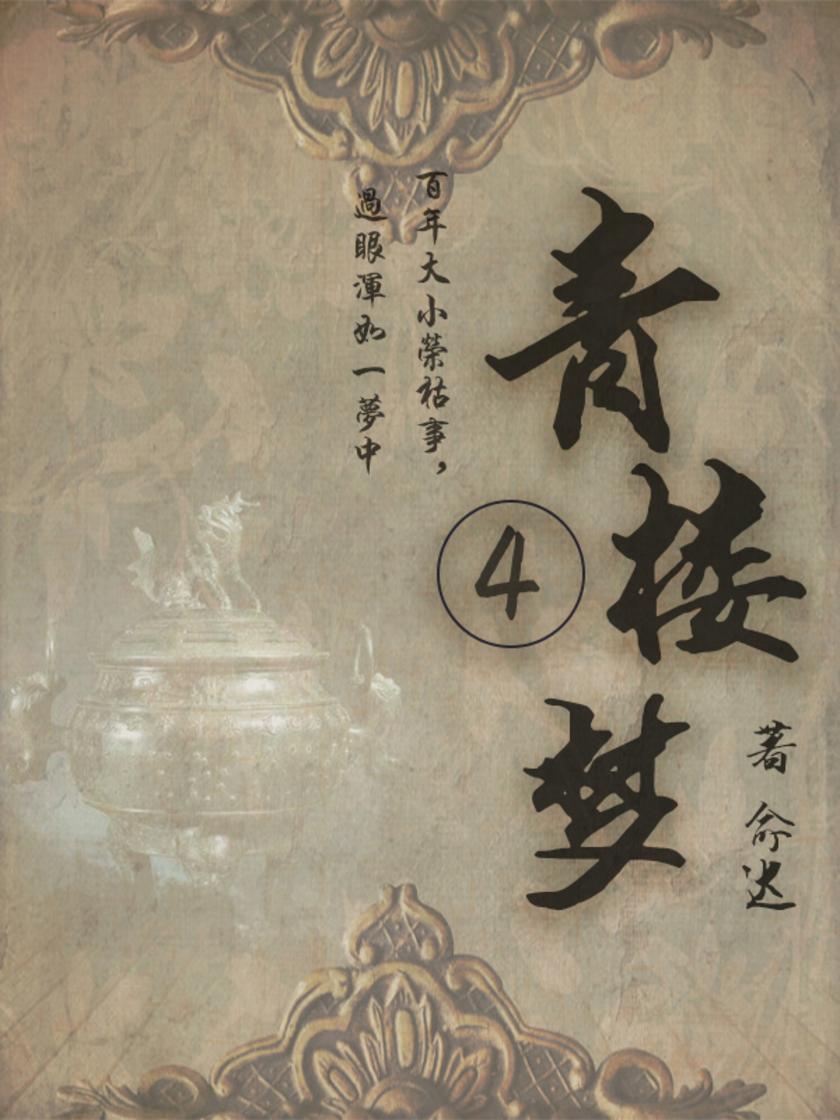 青楼梦
4
著 俞达
百年大小荣祜事，
過眼渾如一夢中